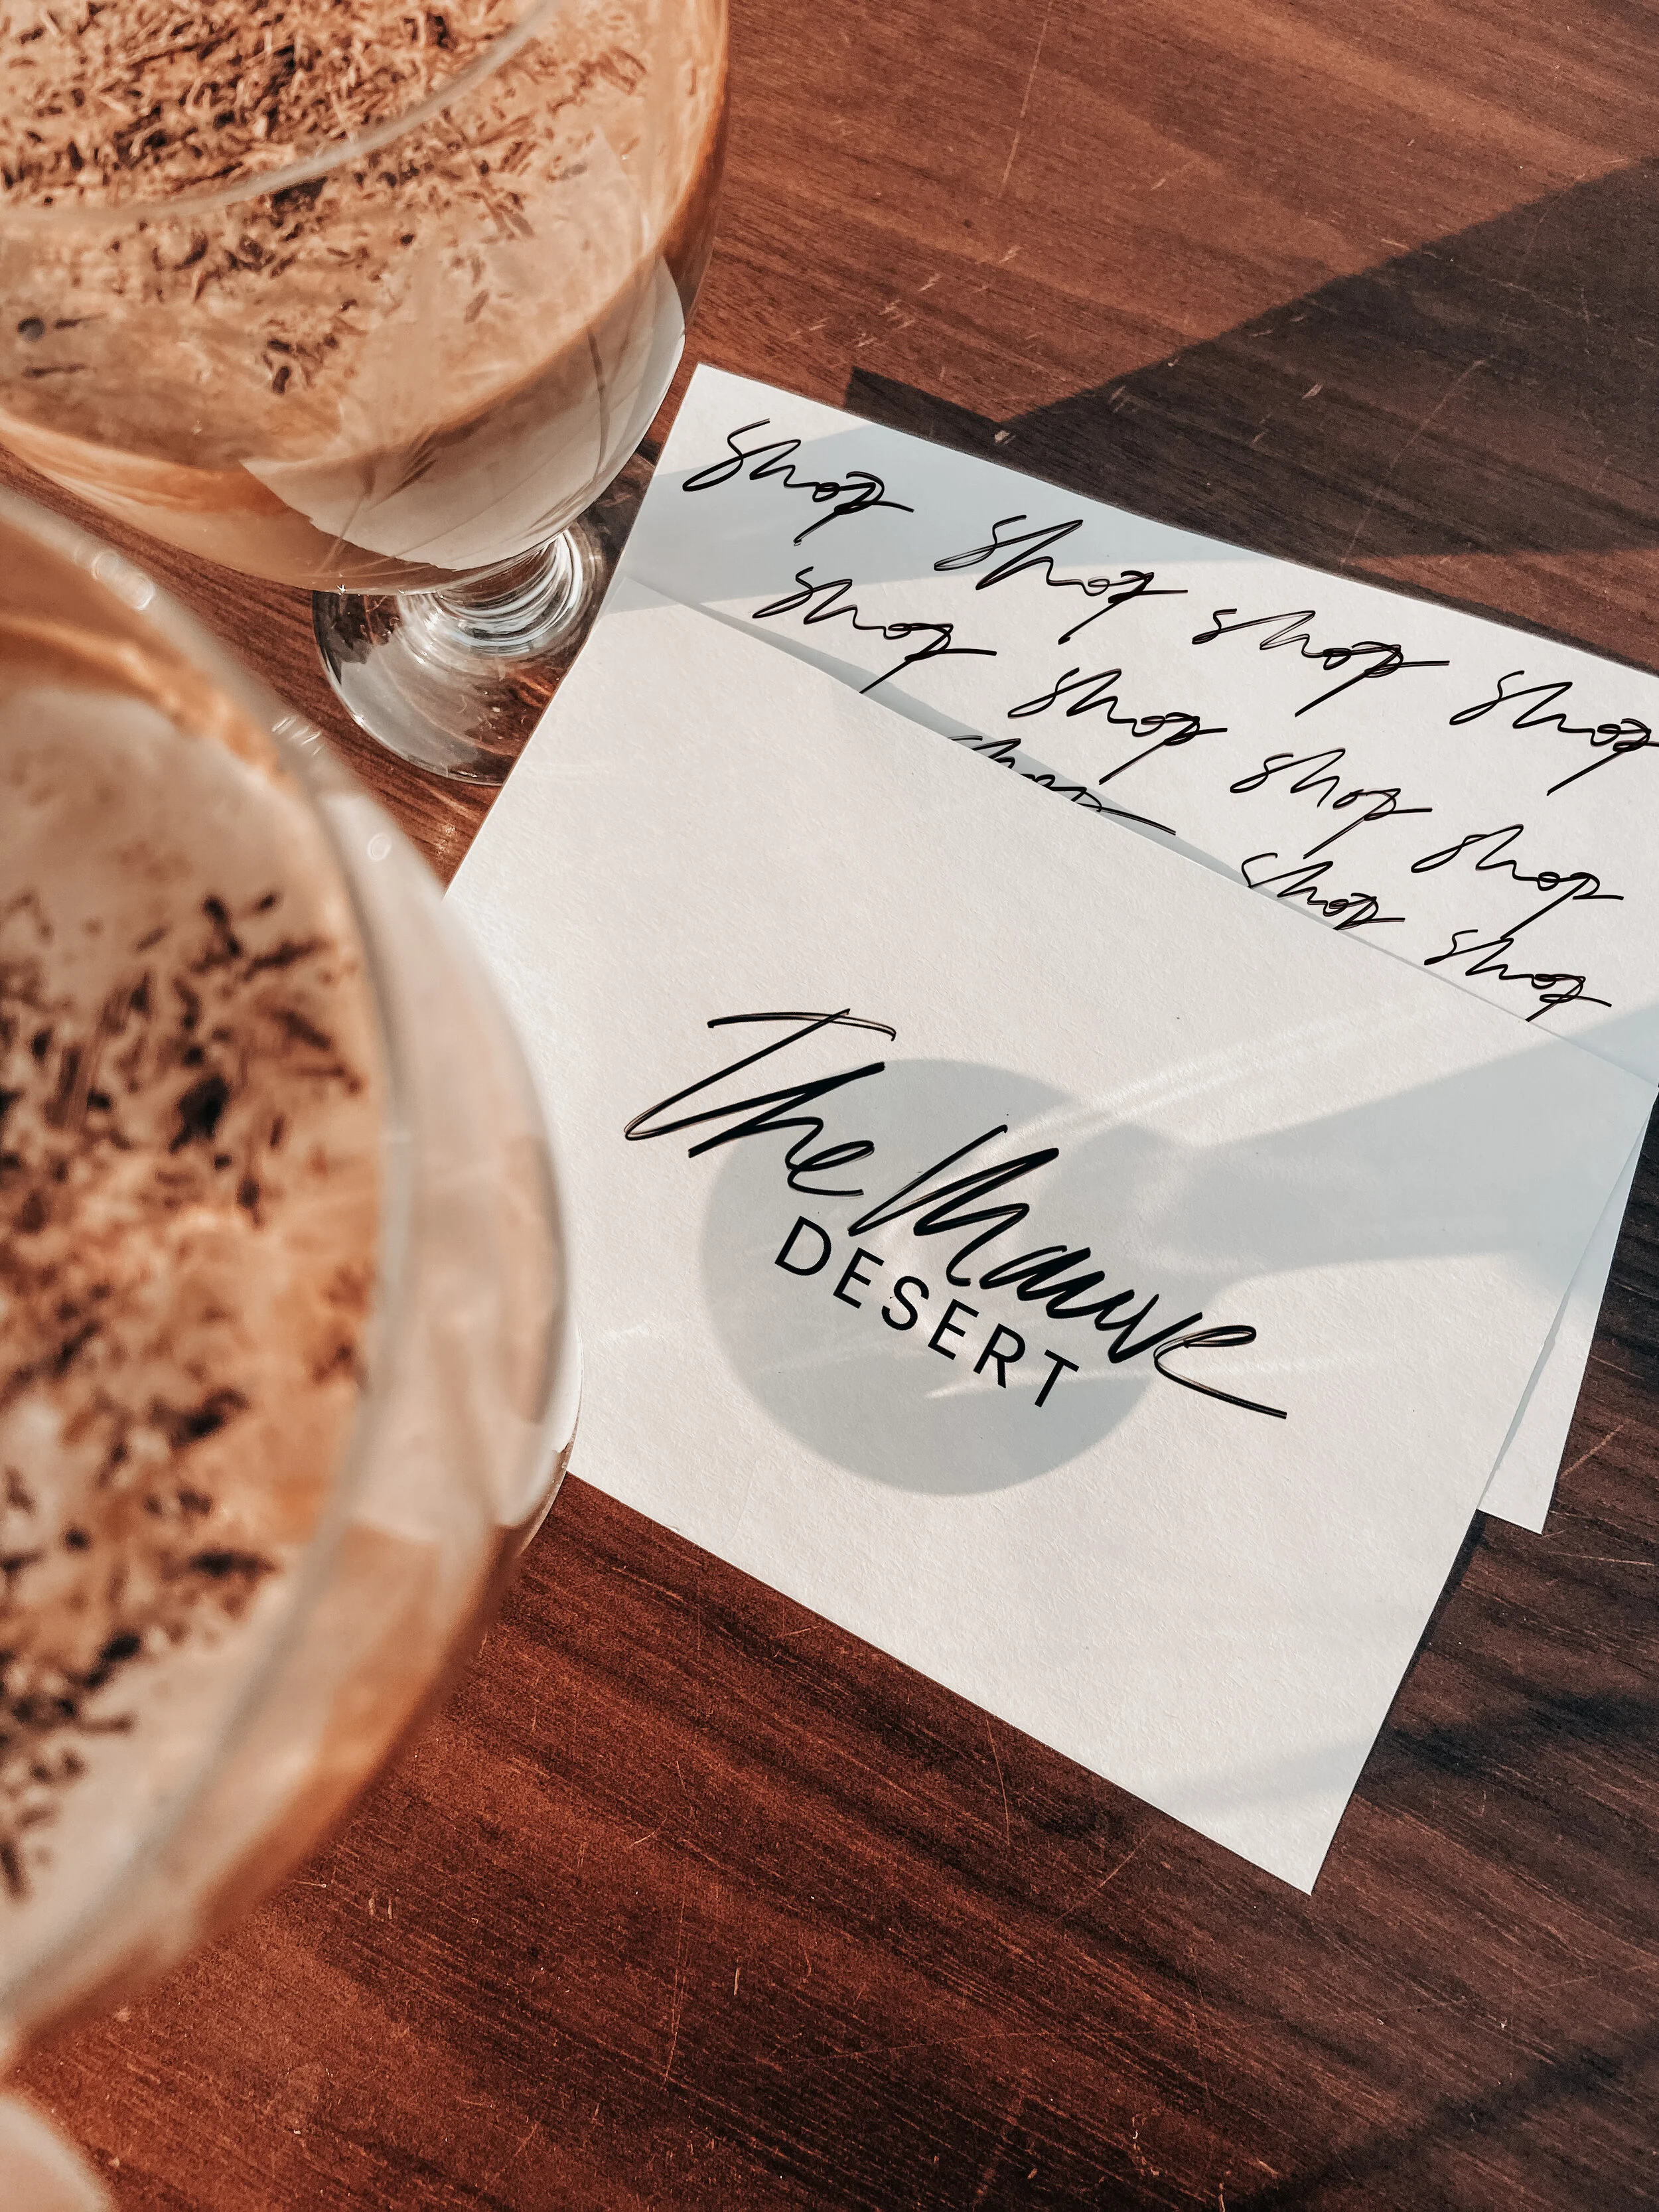 shop shop shop shop
shop shop shop shop
shop shop shop
The Mauve
DESERT